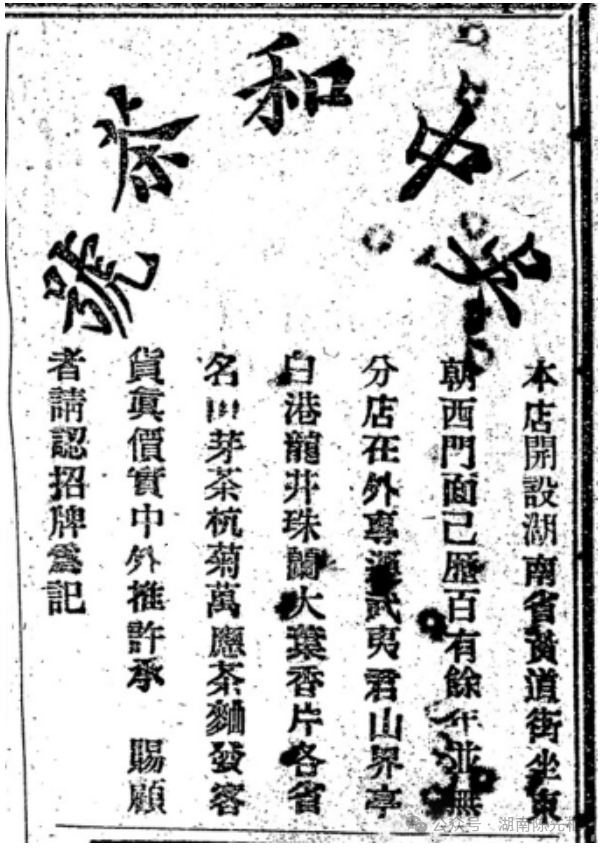 和號
本店開設湖南省黃道街坐東
朝西門面己歷百有餘年並無
分店在外專武夷君山界亭
白港龍井珠蘭大葉香片各省
名山芽茶杭菊萬應茶麯發客
貨眞價實中外推許承　賜顧
者請認招牌爲記
公众号 · 湖南陈先